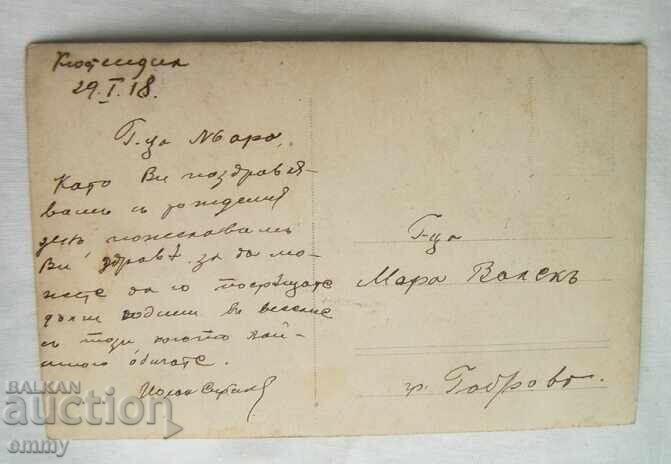 Кюстендил
29.I.18.
Г-ца Мара,
Като Ви поздравя-
вамъ съ рождения
день пожелавамъ
Ви здравѣ за да мо-
жете да го посрѣщате
дълги години въ веселие
съ този когото най-
много обичате.
Г-ца
Мара
гр. Габрово.
BALKAN
auction
emmy